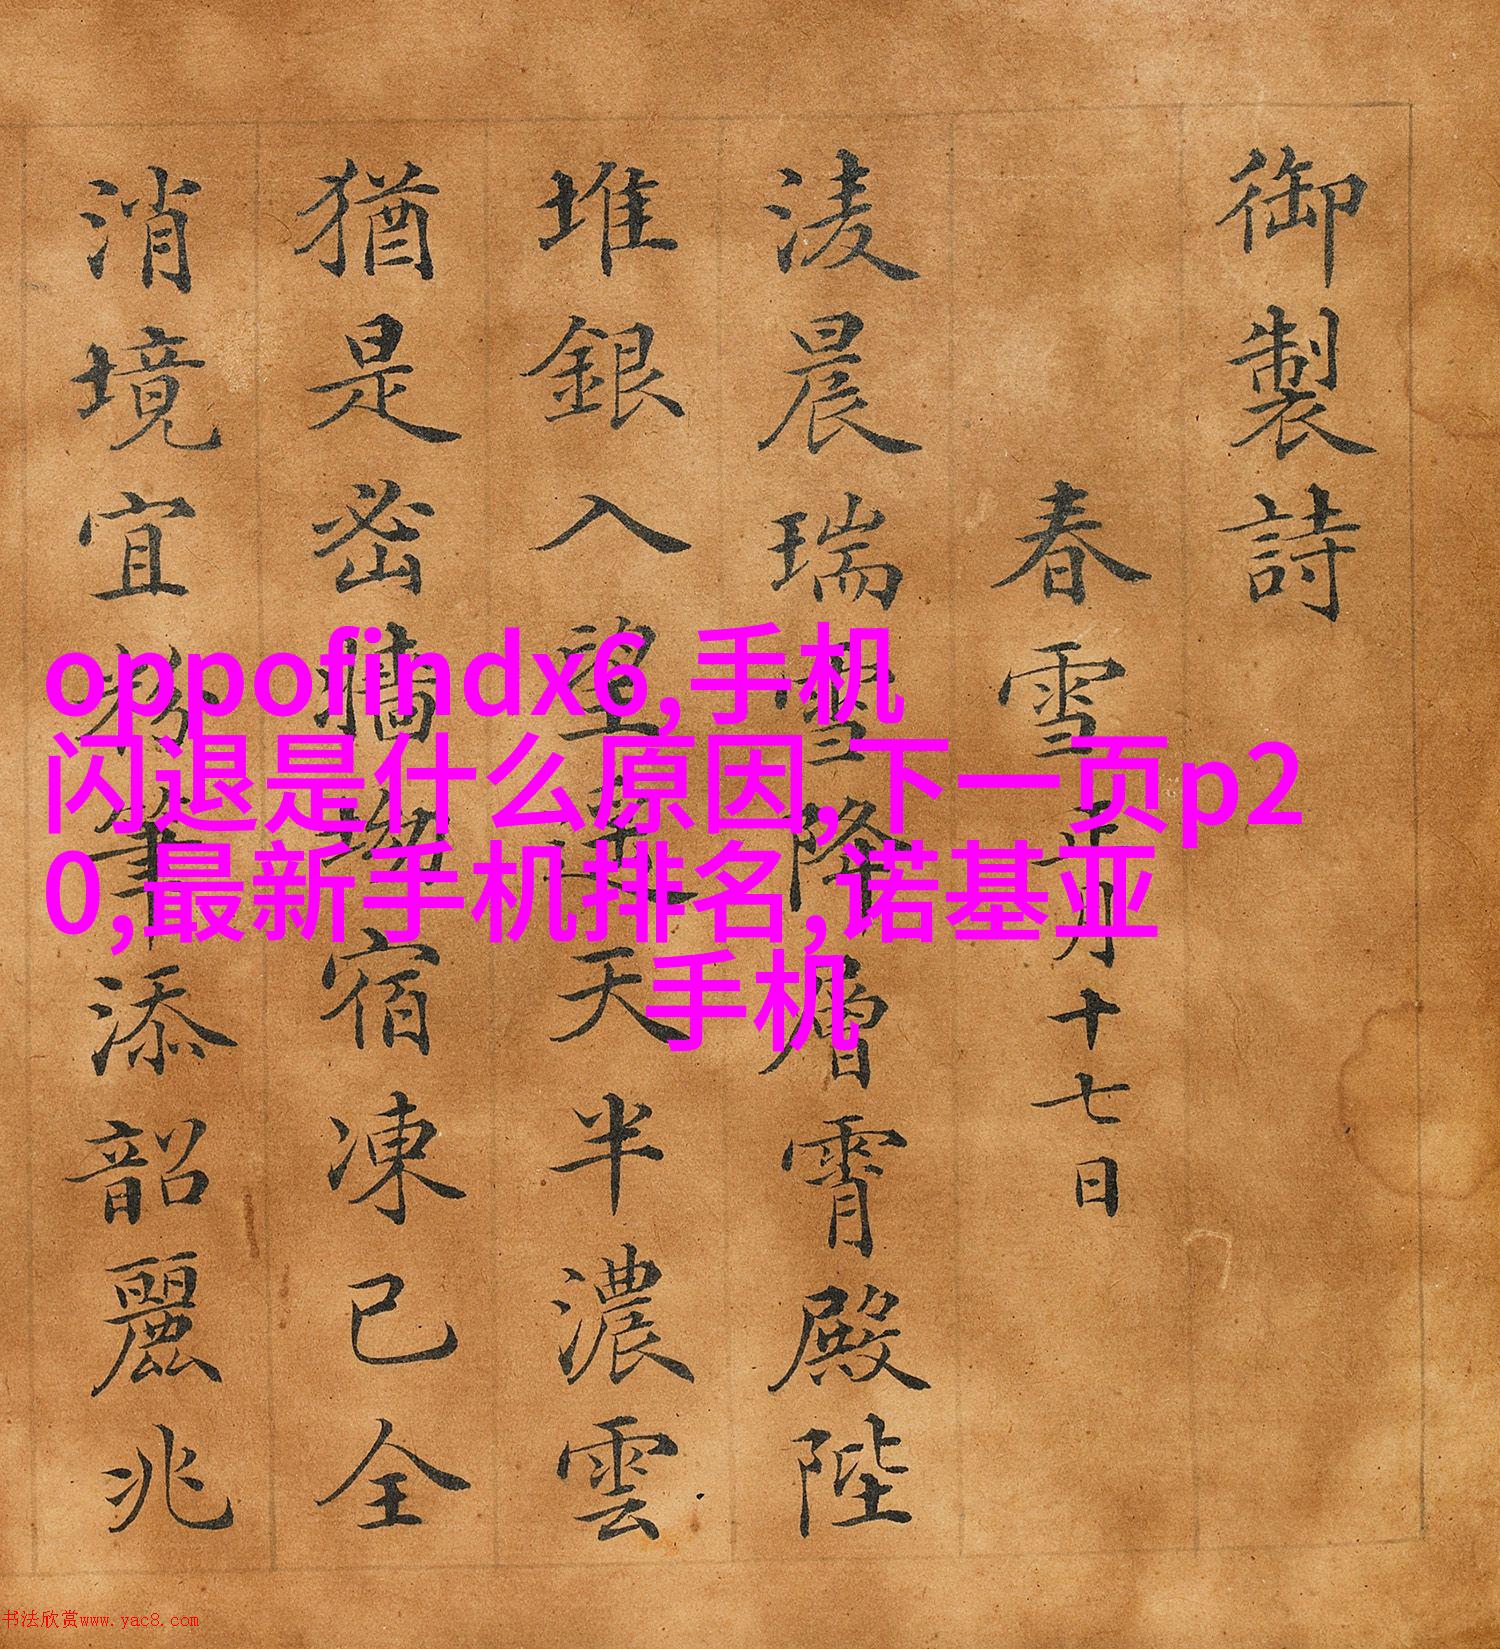 御製詩
春雪 正月十七日
淩晨瑞雪降層霄殿陛
堆銀入望天半濃雲
猶是密牆宿凍已全
消境宜粉筆添韶麗兆
oppofindx6,手机
闪退是什么原因,下一页p2
0,最新手机排名,诺基亚
手机
书法欣赏www.yac8.com